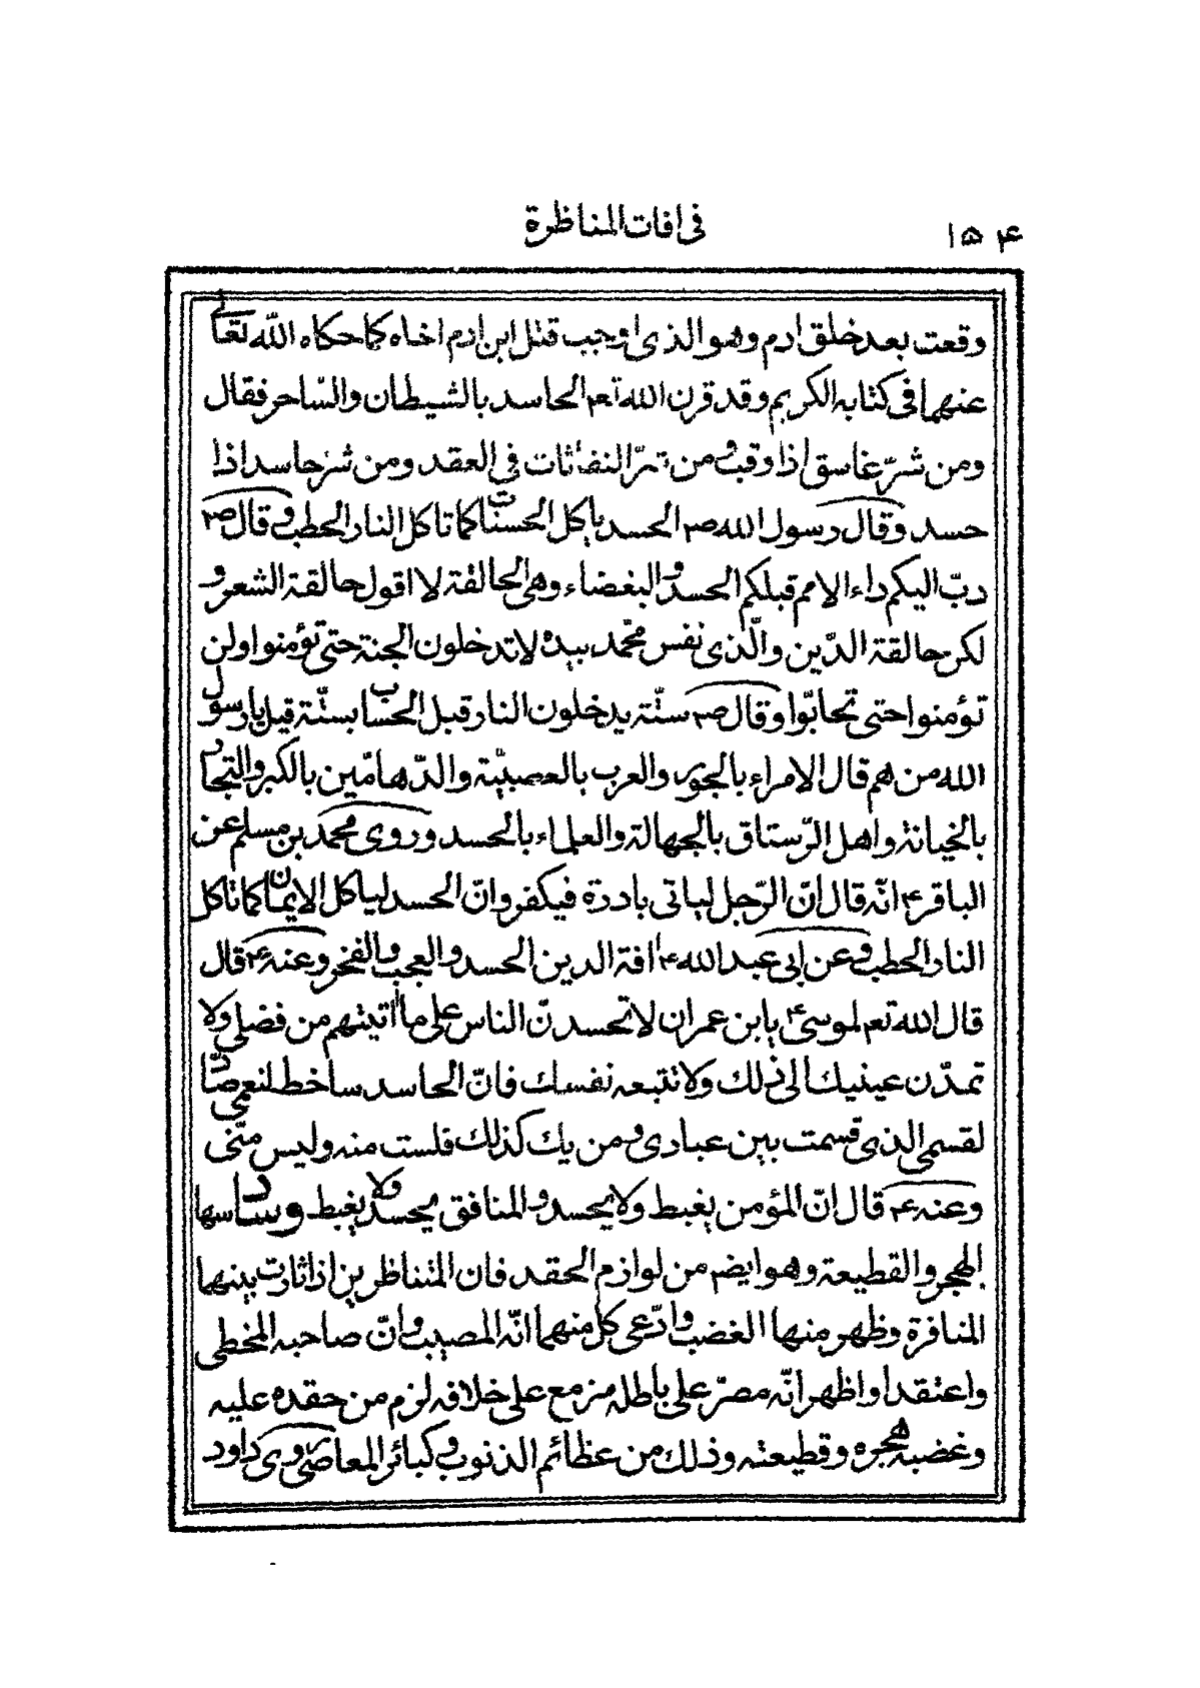 ١٥۴ فى افات المناظرة
وقعت بعد خلق ادم وهو الذى اوجب قتل ابن ادم اخاه كما حكاه اللّه تعالى
عنهما فى كتابه الكريم وقد قرن الله تعم الحاسد بالشيطان والسّاحر فقال
ومن شرّ غاسق اذا وقب ومن شرّ النفاثات فى العقد ومن شرّ حاسد اذا
حسد وقال رسول الله ص الحسد ياكل الحسنات كما تاكل النار الحطب وقال ص
دبّ اليكم داء الامم قبلكم الحسد والبغضاء وهى الحالقة لا اقول حالقة الشعر و
لكن حالقة الدّين والّذى نفس محمّد بيده لا تدخلون الجنة حتى تؤمنوا ولن
تؤمنوا حتى تحابّوا وقال ص ستّة يدخلون النار قبل الحساب بستّة قيل يا رسول
الله من هم قال الامراء بالجور والعرب بالعصبيّة والدّهاقين بالكبر والتجار
بالخيانة واهل الرّستاق بالجهالة والعلماء بالحسد وروى محمد بن مسلم عن
الباقر ع انّه قال انّ الرّجل لياتى بادرة فيكفر وانّ الحسد لياكل الايمان كما تاكل
النار الحطب وعن ابى عبد الله ع افة الدين الحسد والعجب والفخر وعنه ع قال
قال الله تعم لموسى ع يا بن عمران لا تحسدنّ الناس على ما اتيتهم من فضلى ولا
تمدّن عينيك الى ذلك ولا تتبعه نفسك فانّ الحاسد ساخط لنعمى صادّ
لقسمى الذى قسمت بين عبادى ومن يك كذلك فلست منه وليس منّى
وعنه ع قال انّ المؤمن يغبط ولا يحسد والمنافق يحسد ولا يغبط وسادسها
الهجر والقطيعة وهو ايضم من لوازم الحقد فان المتناظرين اذا ثارت بينهما
المنافرة وظهر منها الغضب وادّعى كل منهما انّه المصيب وانّ صاحبه المخطى
واعتقد او اظهر انّه مصرّ على باطله مزمع على خلافه لزم من حقده عليه
وغضبه هجره وقطيعته وذلك من عظائم الذنوب وكبائر المعاصى وروى داود